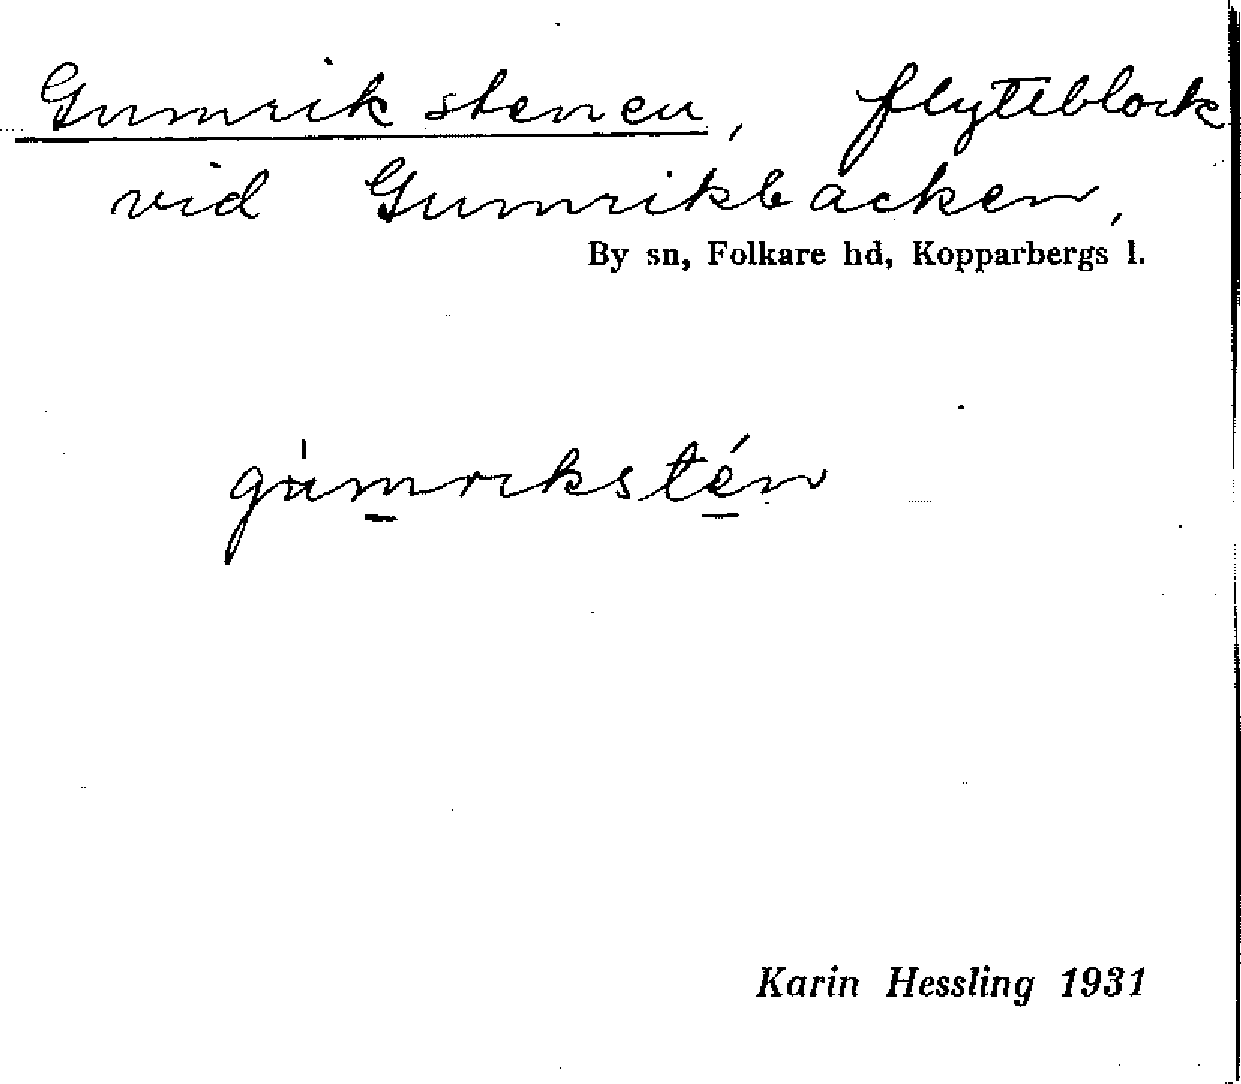 Gumrikstenen, flyttblock
vid Gumrikbacken,
By sn, Folkare hd, Kopparbergs l.
gùmrikstén
Karin Hessling 1931